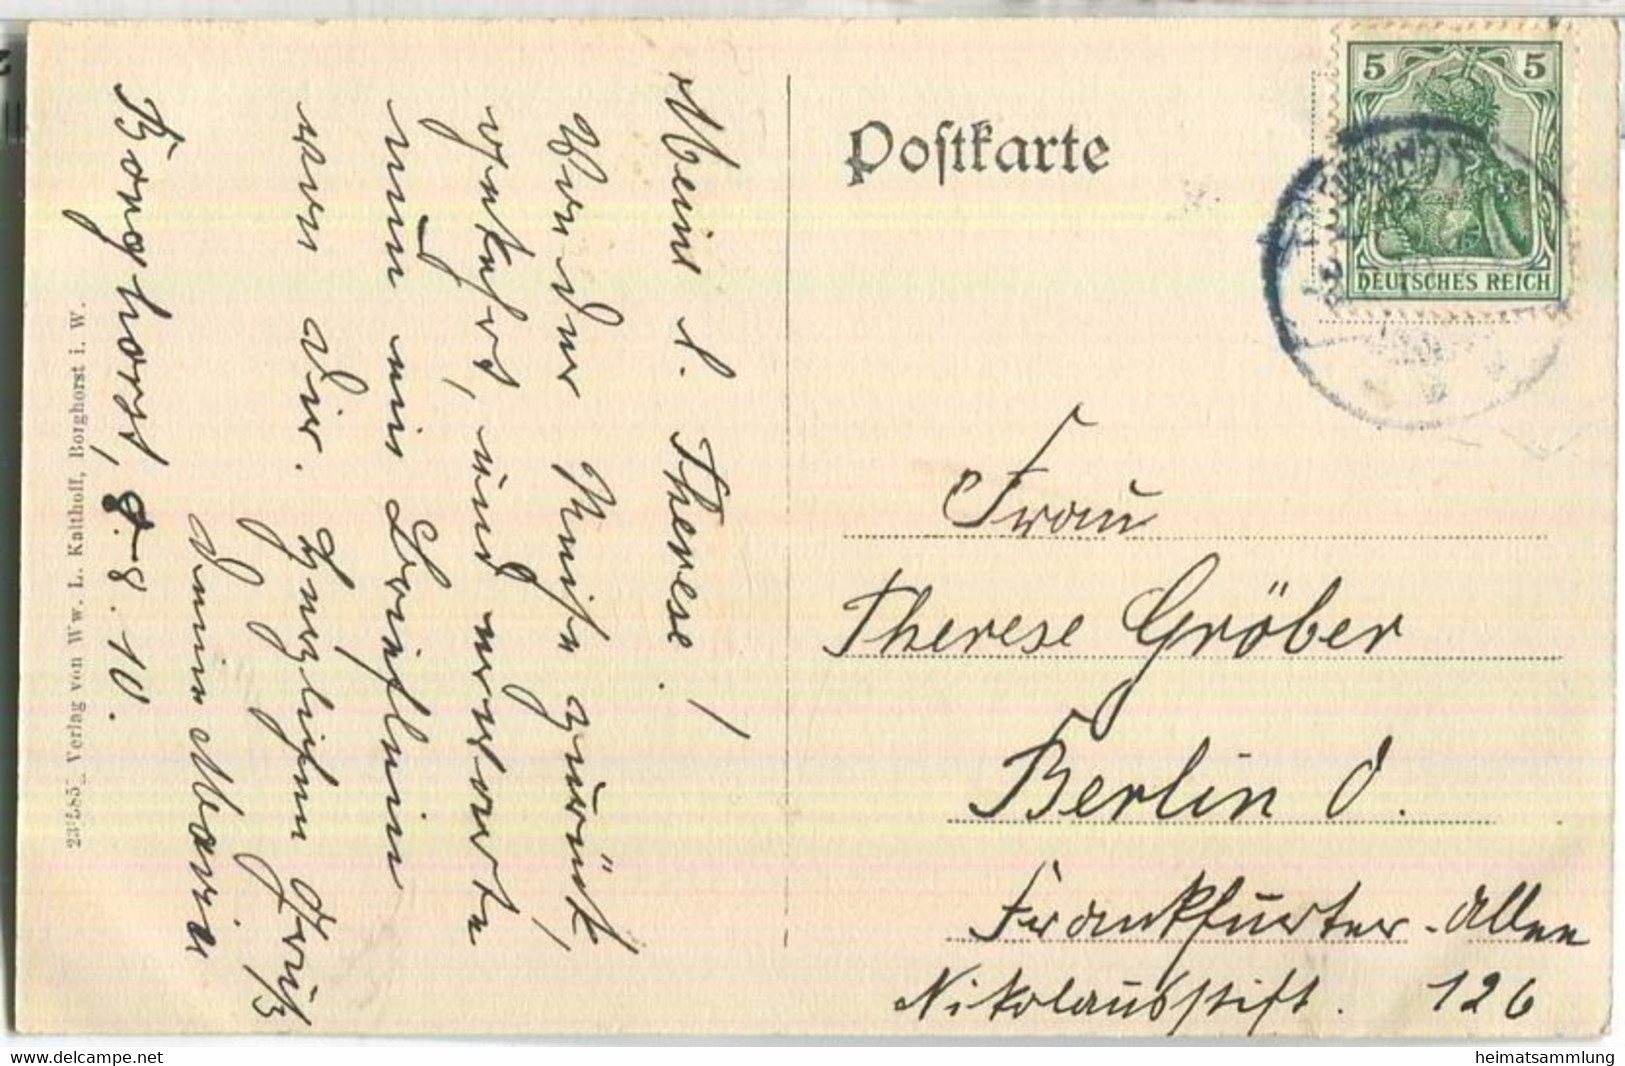 Meine l. Therese!
Von der Reise zurück
gekehrt, und erwarte
nun ein Brieflein
von dir. Herzlichen Gruß
deine Maria
Borghorst, 8.8.10.
Verlag von Ww. L. Kalthoff, Borghorst i. W.
Postkarte
5 5
DEUTSCHES REICH
Frau
Therese Gröber
Berlin O.
Frankfurter-Allee
Nikolausstift. 126
www.delcampe.net
heimatsammlung